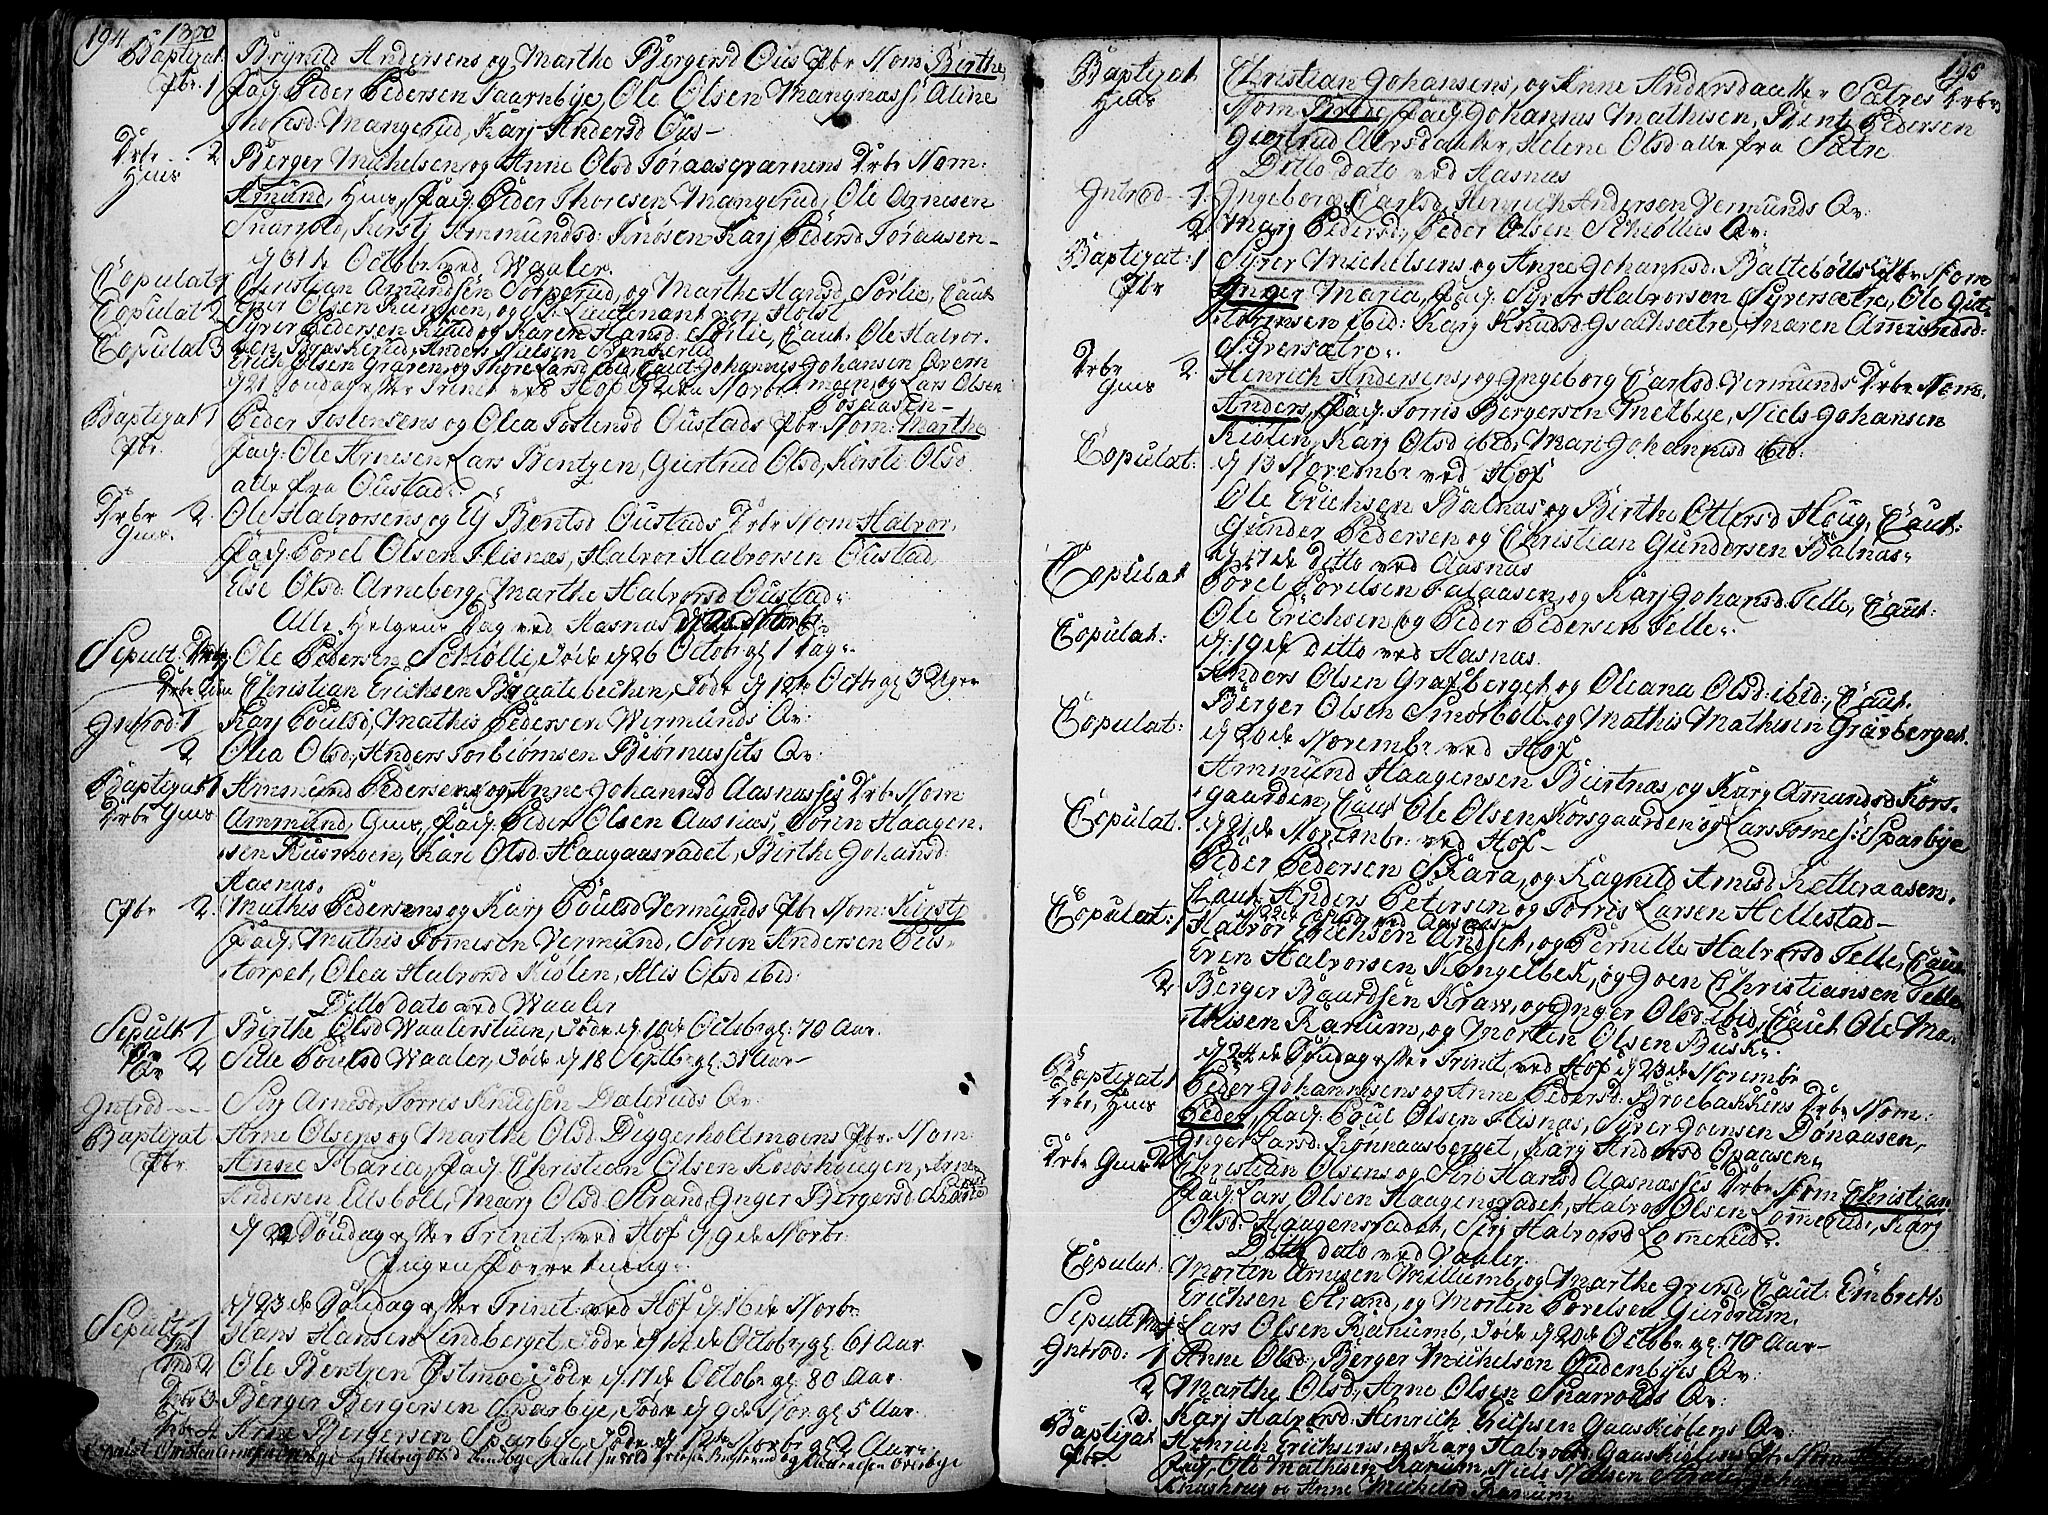 194 1800
Baptizat Brynild Andersens og Marthe Bergersd Ous Pbr Nom Birthe
Pbr. 1 Fad: Peder Pedersen Taarnbye, Ole Olsen Mangnass Aline
Thoresd: Mangerud, Karj Andersd Ous
Drbr 2 Berger Michelsen, og Anne Olsd Joraasqværnens Drbr Nom:
Hms Amund, Hms, Fad: Peder Thoresen Mangerud, Ole Arnesen
Snarvold, Kirstj Ammundsd: Karj Pedersd Joraasen
d 31te Octobr ved Waaler
Copulat 1 Christian Amundsen Torperud, og Marthe Hansd Sørlie, Caut
Copulat 2 Ener Olsen og Hr: Lieutenant von Holst
Copulat 3 Syver Pedersen Ruud og Karen Hansd: Sørlie, Caut: Ole Halvor-
sen Braskerud, Anders Nielsen
Erich Olsen Graven, og Thore Larsd ibid, Caut Johannes Johansen Qvern
d 21 Søndag efter Trinit ved Hof d 2den Novbr moen, og Lars Olsen
Posaasen
Baptizat 1 Peder Jostensens og Olea Jostensd Oustads Pbr Nom: Marthe
Pbr. Fad: Ole Arnesen, Lars Bentzen, Giertrud Olsd, Kirsti Olsd
alle fra Oustad
Drbr 2. Ole Halvorsens og Elj Bentsd Oustads Drbr Nom Halvor,
Gms. Fad: Povel Olsen Flisnas, Halvor Halvorsen Oustad,
Else Olsd Arneberg, Marthe Halvorsd Oustad
Alle Helgens Dag ved Aasnas
Sepult: Drbr Ole Pedersen Schiølli, døde d 26 Octobr gl 1 Dag
Drbr Gms Christian Erichsen Braatebechen, døde d 12te Octbr gl 3 Uger
Introd: 1 Karj Poulsd, Mathis Pedersen Vermunds Qv:
2 Olea Olsd, Anders Torbiørnsen Biørnussits Qv:
Baptizat 1 Ammund Pedersens og Anne Johannsd Aasnasses Drbr Nom
Drbr Gms Ammund, Gms, Fad: Peder Olsen Aasnas, Poren Haagen-
sen Rusmoen, Kari Olsd Haagaasvadet, Birthe Johansd:
Aasnas.
Pbr 2. Mathis Pedersens og Karj Poulsd Vermunds Pbr Nom: Kirstj
Fad: Mathis Tomesen Vermund, Søren Andersen Pels-
torpet, Olea Halvorsd Kiølen, Altis Olsd ibid:
Ditto dato ved Waaler
Sepult 1 Birthe Olsd Waalerstuen, døde d 10de Octobr gl: 70 Aar.
Qv 2 Sille Poulsd Waaler, døde d 18 Septbr gl: 31 Aar
Introd Sirj Arnesd, Torris Knudsen Daleruds Qv
Baptizat Arne Olsens og Marthe Olsd Diggerholtmoens Pbr Nom:
Pbr Anne Maria, Fad: Christian Olsen Knoshougen, Arne
Andersen Elsboll, Marj Olsd Strand, Inger Bergersd
d 22 Søndag efter Trinit: ved Hof d 9de Novbr:
Ingen Forretning
d 23de Søndag efter Trinit: ved Hof d 16de Novbr
Sepult 1 Hans Hansen Lindberget, døde d 14de Octobr gl 61 Aar
Md 2 Ole Bentzen Østmoe døde d 17de Octobr gl 80 Aar
Drbr 3 Berger Bergersen Sparbye, døde d 9de Nov: gl 5 Aar
Drbr 4 Arne Bergersen Sparbye, døde d 12te Novbr gl 2 Aar
195
Baptizat Christian Johansens, og Anne Andersdaatter Sætres Drbr
Hms Nom Brede, Fad: Johannes Mathisen, Bentz Pedersen
Giertrud Helene Olsd alle fra Sætre
Ditto dato ved Aasnas
Introd 1. Ingeborg Carlsd, Henrich Andersen Vermunds Qv:
2 Marj Pedersd, Peder Olsen Schiøllis Qv:
Baptizat: 1 Syver Michelsens og Anne Johannsd: Baltebølls Pbr Nom
Pbr Inger Maria, Fad: Syver Halvorsen Syversætre, Ole Gut-
tormsen ibid: Karj Knudsd Maren Ammundsd:
Syversætre.
Drbr 2. Henrich Andersens, og Ingeborg Carlsd Vermunds Drbr Nom
Gms Anders, Fad: Torris Bergersen Melbye, Niels Johansen
Kiølen, Karj Olsd ibid, Mari Johannesd ibid:
Copulat: d 13 Novembr ved Hof
Ole Erichsen Balnas og Birthe Ottersd Houg, Caut:
Gunder Pedersen og Christian Gundersen Balnas
Copulat d 17de ditto ved Aasnas
Povel Povelsen Falaasen, og Karj Johansd: Telle, Caut:
Ole Erichsen og Peder Pedersen Telle.
Copulat: d: 19de ditto ved Aasnas.
Anders Olsen Grafberget og Oleana Olsd: ibid:, Caut.
Berger Olsen Smorboll, og Mathis Mathisen Gravberget.
Copulat: d 20de Novembr ved Hof
Ammund Haagensen Buertnas, og Karj Amundsd Kors-
gaarden, Caut Ole Olsen Korsgaarden og Lars Tomes: Sparbye
Copulat: d 21de Novembr: ved Hof
Peder Pedersen Skara, og Ragnild Arnesd Ketteraasen.
Caut Anders Petersen og Torris Larsen Hellestad
d 22de ditto ved Aasnas
Copulat: 1 Halvor Erichsen Undset, og Pernille Halvorsd Telle, Caut
Even Halvorsen Kongelbek, og Joen Christiansen Telle
2 Berger Baardsen Kraw, og Inger Olsd: ibid, Caut Ole Ma-
thisen Ranum, og Morten Olsen Busk.
d 24de Søndag efter Trinit, ved Hof d 23de Novembr
Baptizat 1 Peder Johannesens og Anne Pedersd: Broebakkens Drbr Nom:
Drbr, Hms Peder, Fad: Poul Olsen Flisnas, Syver Joensen Dønaasen,
Inger Larsd: Rønnaasberget, Karj Andersd Opaasen
Drbr Gms 2 Christian Olsens og Siri Hansd Aasnasses Drbr Nom Christian
Fad: Lars Olsen Haagensvadet, Halvor Olsen Lomerud, Karj
Olsd: Haagensvadet, Sirj Halvorsd Lomerud.
Ditto dato ved Vaaler
Copulat: Morten Arnesen Millumb, og Marthe Iversd, Caut: Embreth
Erichsen Strand, og Morten Povelsen Gierdrum.
Sepult Lars Olsen Ranumb, døde d 20de Octobr gl: 70 Aar
Introd: 1 Anne Olsd, Berger Michelsen Oudenbyes Qv:
2 Marthe Olsd, Arne Olsen Snarvolds Qv:
3. Karj Halvorsd: Hinrich Erichsen Gaaskiølens Qv:
Baptizat Hinrich Erichsens, og Karj Halvorsd Gaaskiølens Pbr Nom
Pbr Fad: Ole Mathisen Ranum, Niels Nielsen
Knushoug og Anne Michelsd Ranum